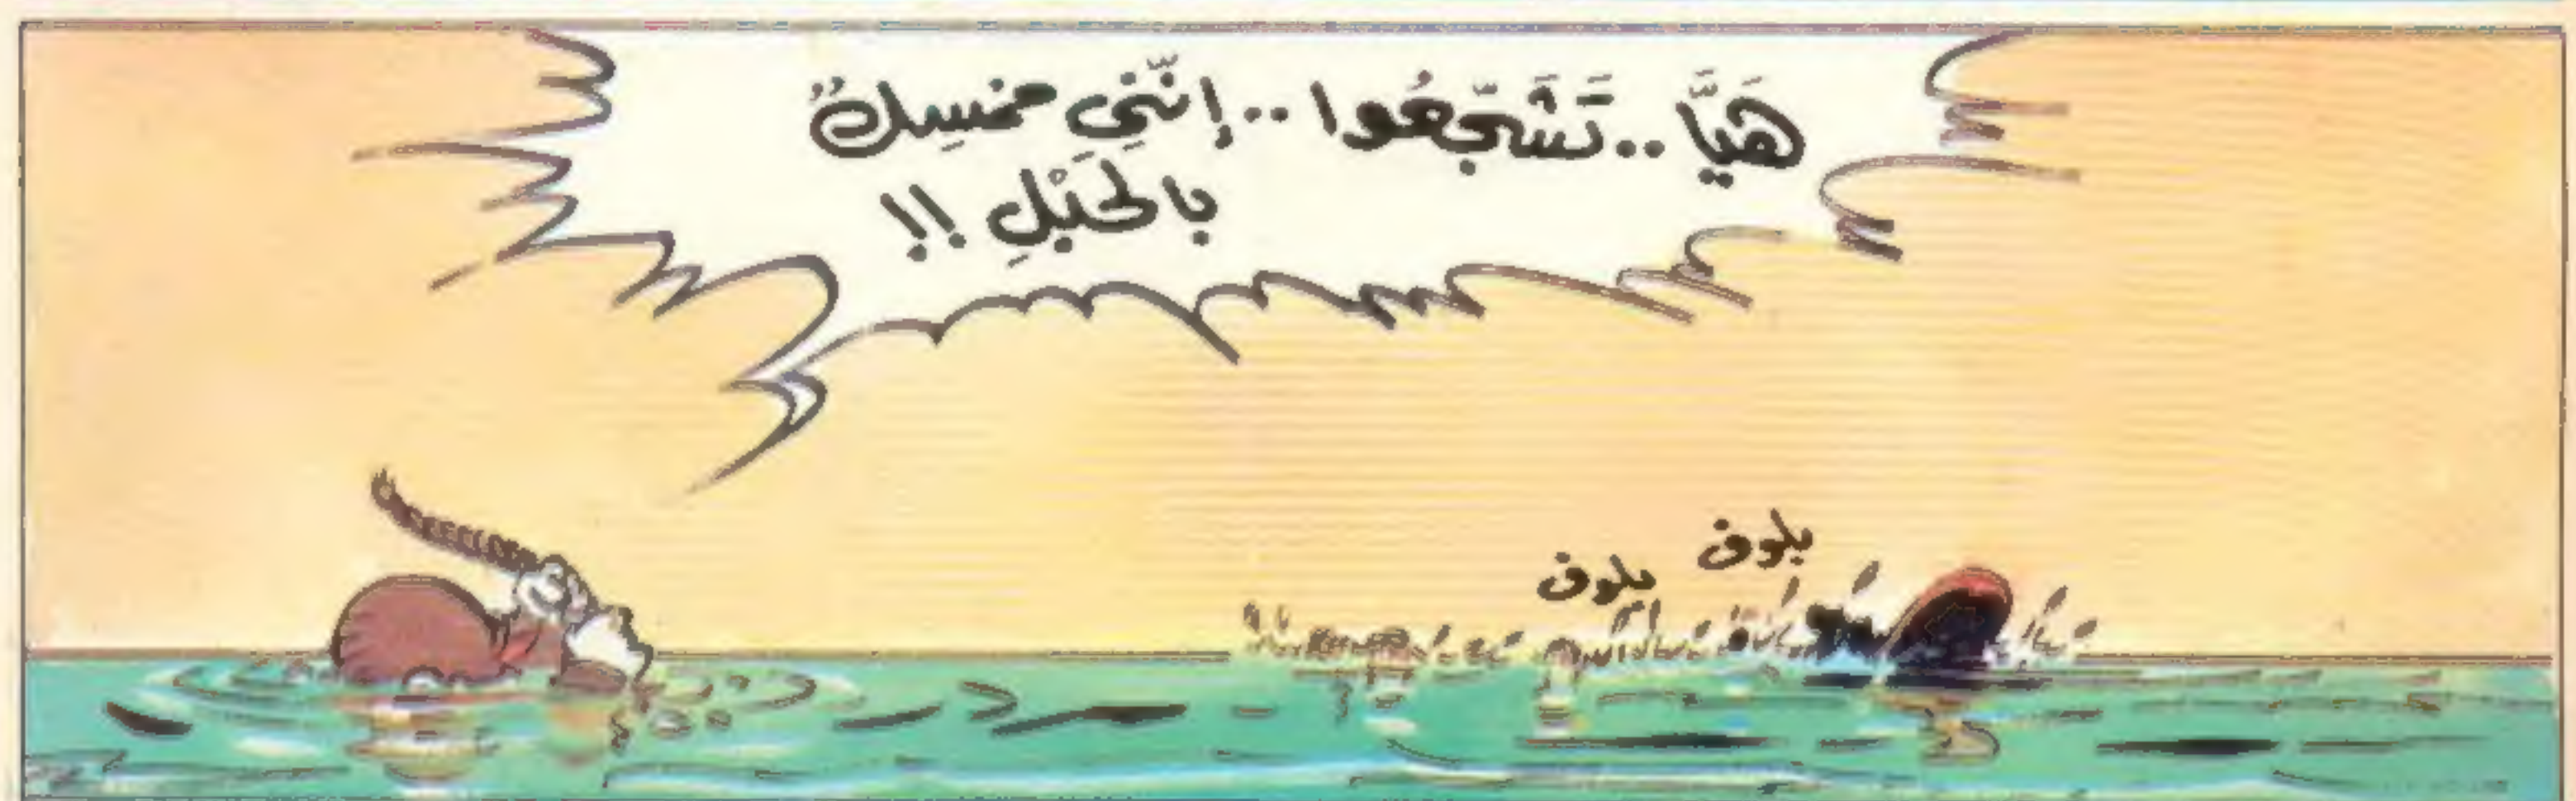 هَيَّا .. تَشَجَّعُوا .. إنَّنِي ممْسِكٌ
بالحَبْلِ !!
بلوف
بلوف